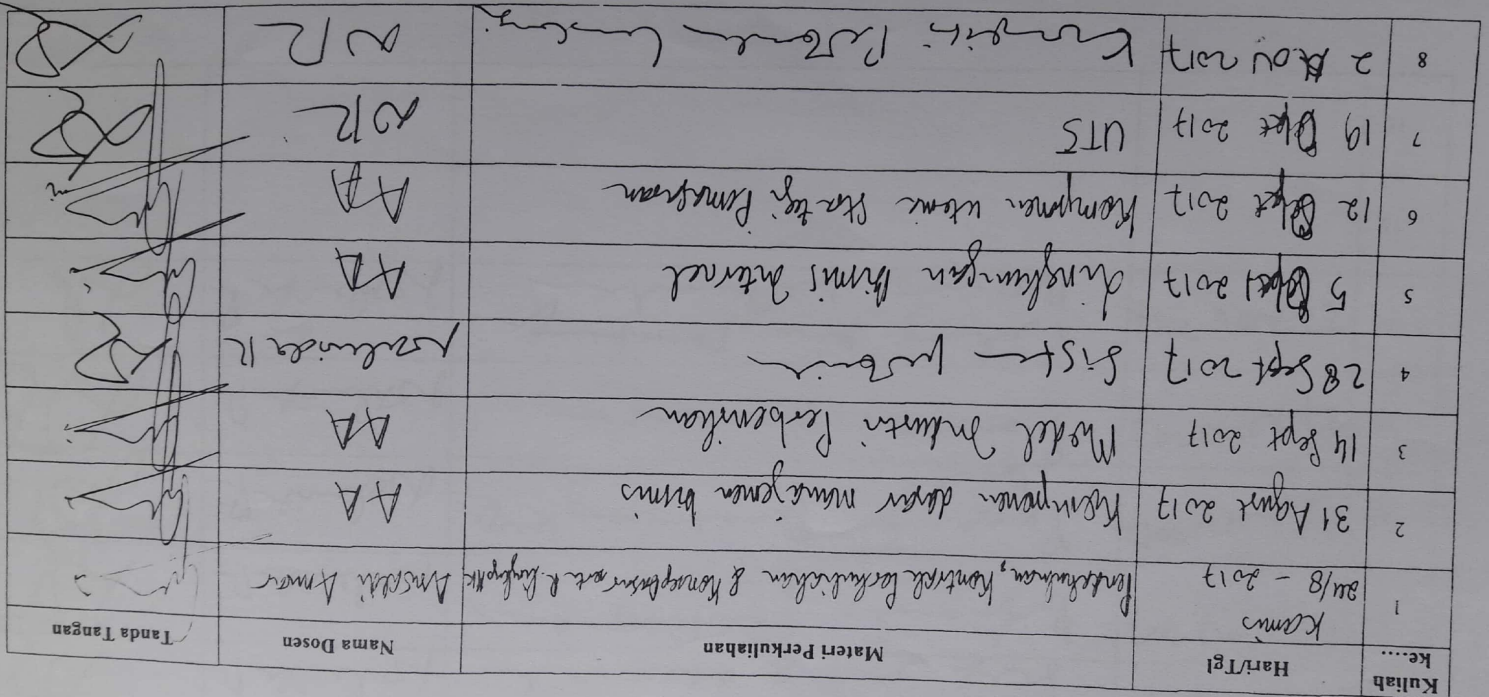 Kuliah ke.... Hari/Tgl Materi Perkuliahan Nama Dosen Tanda Tangan
1 Kamis 24/8 - 2017 Pendahuluan, Kontrak Perkuliahan &
2 31 Agust 2017 Komponen dasar manajemen bisnis AA
3 14 Sept 2017 Model Industri Perbenihan AA
4 28 Sept 2017 Sistem
5 5 Okt 2017 Lingkungan bisnis Internal AA
6 12 Okt 2017 Komponen utama Strategi Pemasaran AA
7 19 Okt 2017 UTS NR
8 2 Nov 2017 NR